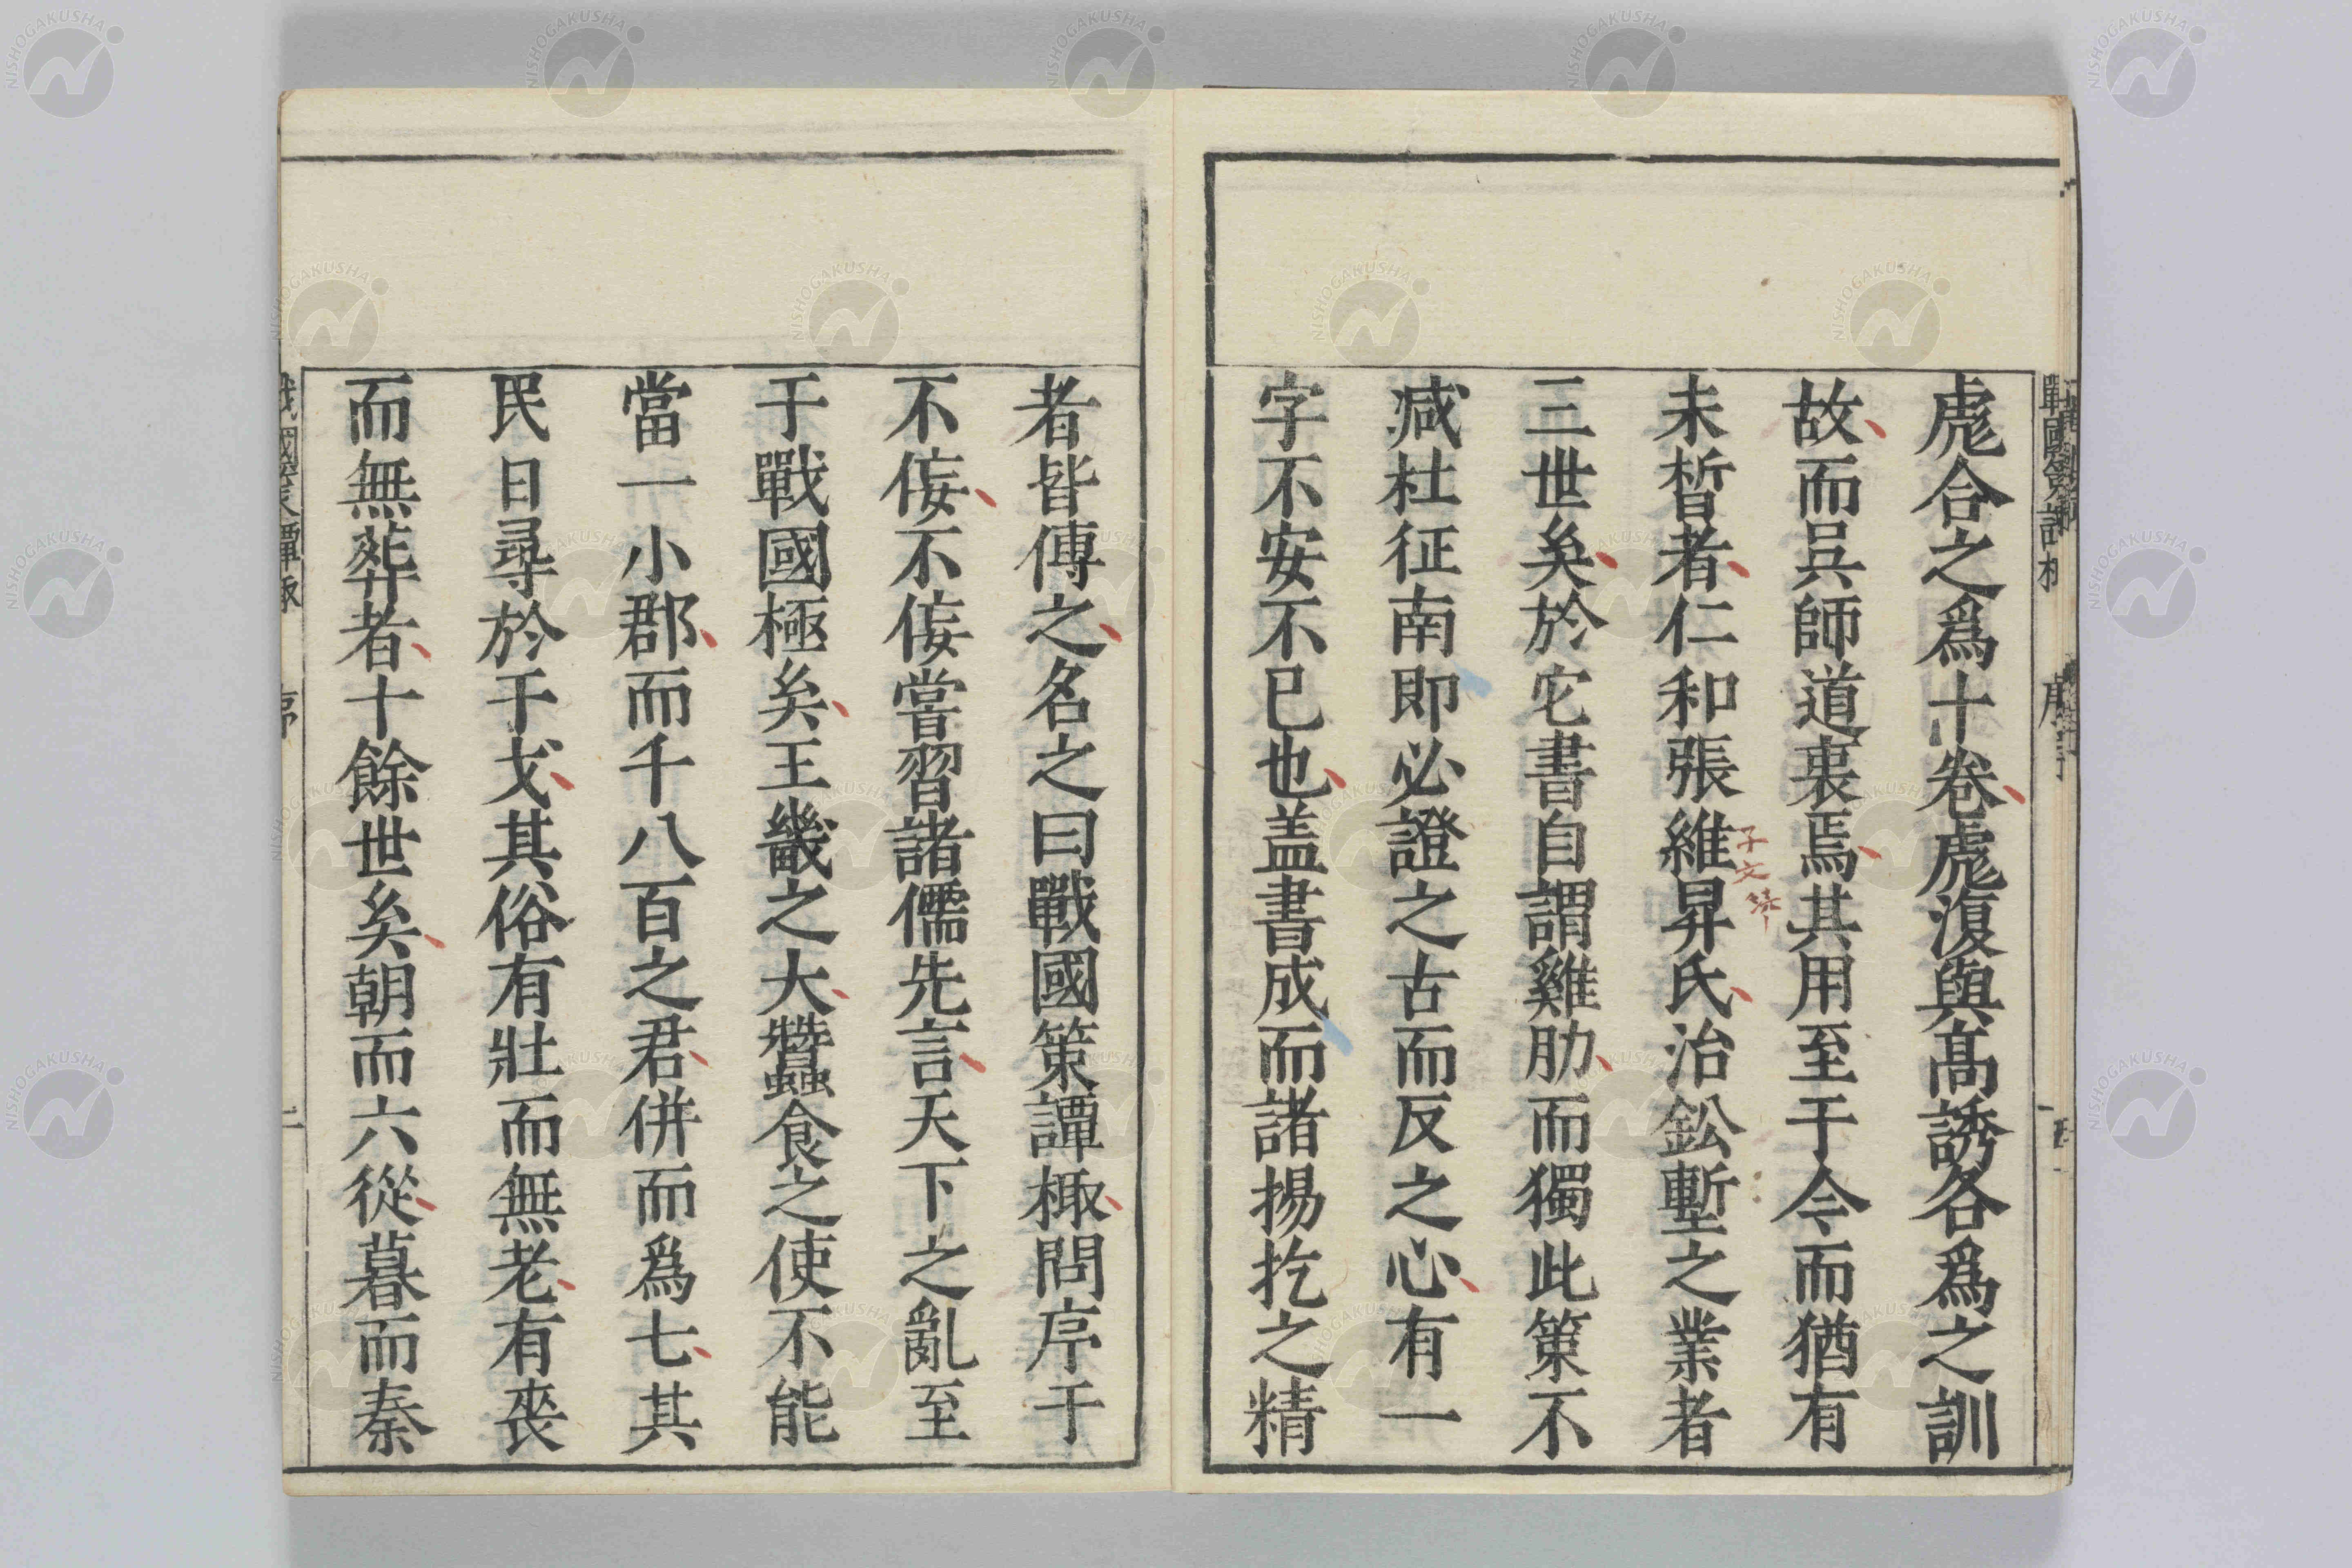 彪合之爲十卷彪復與高誘各爲之訓
故而呉師道裏焉其用至于今而猶有
未晳者仁和張維昇氏治鈆塹之業者
子文
三世矣於它書自謂雞肋而獨此策不
减杜征南即必證之古而反之心有一
字不安不已也盖書成而諸揚扢之精
者皆傳之名之曰戰國策譚棷問序于
不侫不侫嘗習諸儒先言天下之亂至
于戰國極矣王畿之大蠶食之使不能
當一小郡而千八百之君併而爲七其
民日尋於干戈其俗有壯而無老有喪
而無葬者十餘世矣朝而六從暮而秦
戰國策譚棷 序
NISHOGAKUSHA